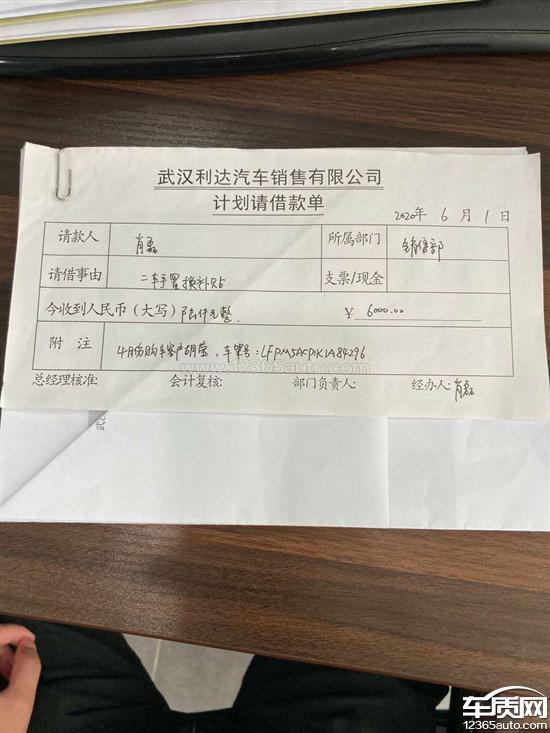 武汉利达汽车销售有限公司
计划请借款单
2020年 6 月 1 日
请款人 肖磊 所属部门 销售部
请借事由 二手车置换补贴 支票/现金
今收到人民币(大写) 陆仟元整 ¥ 6000.00
附 注 4月份购车客户胡莹,车架号:LFPM5ACP1K1A84296
www.12365auto.com
总经理核准: 会计复核: 部门负责人: 经办人: 肖磊
车质网
12365auto.com